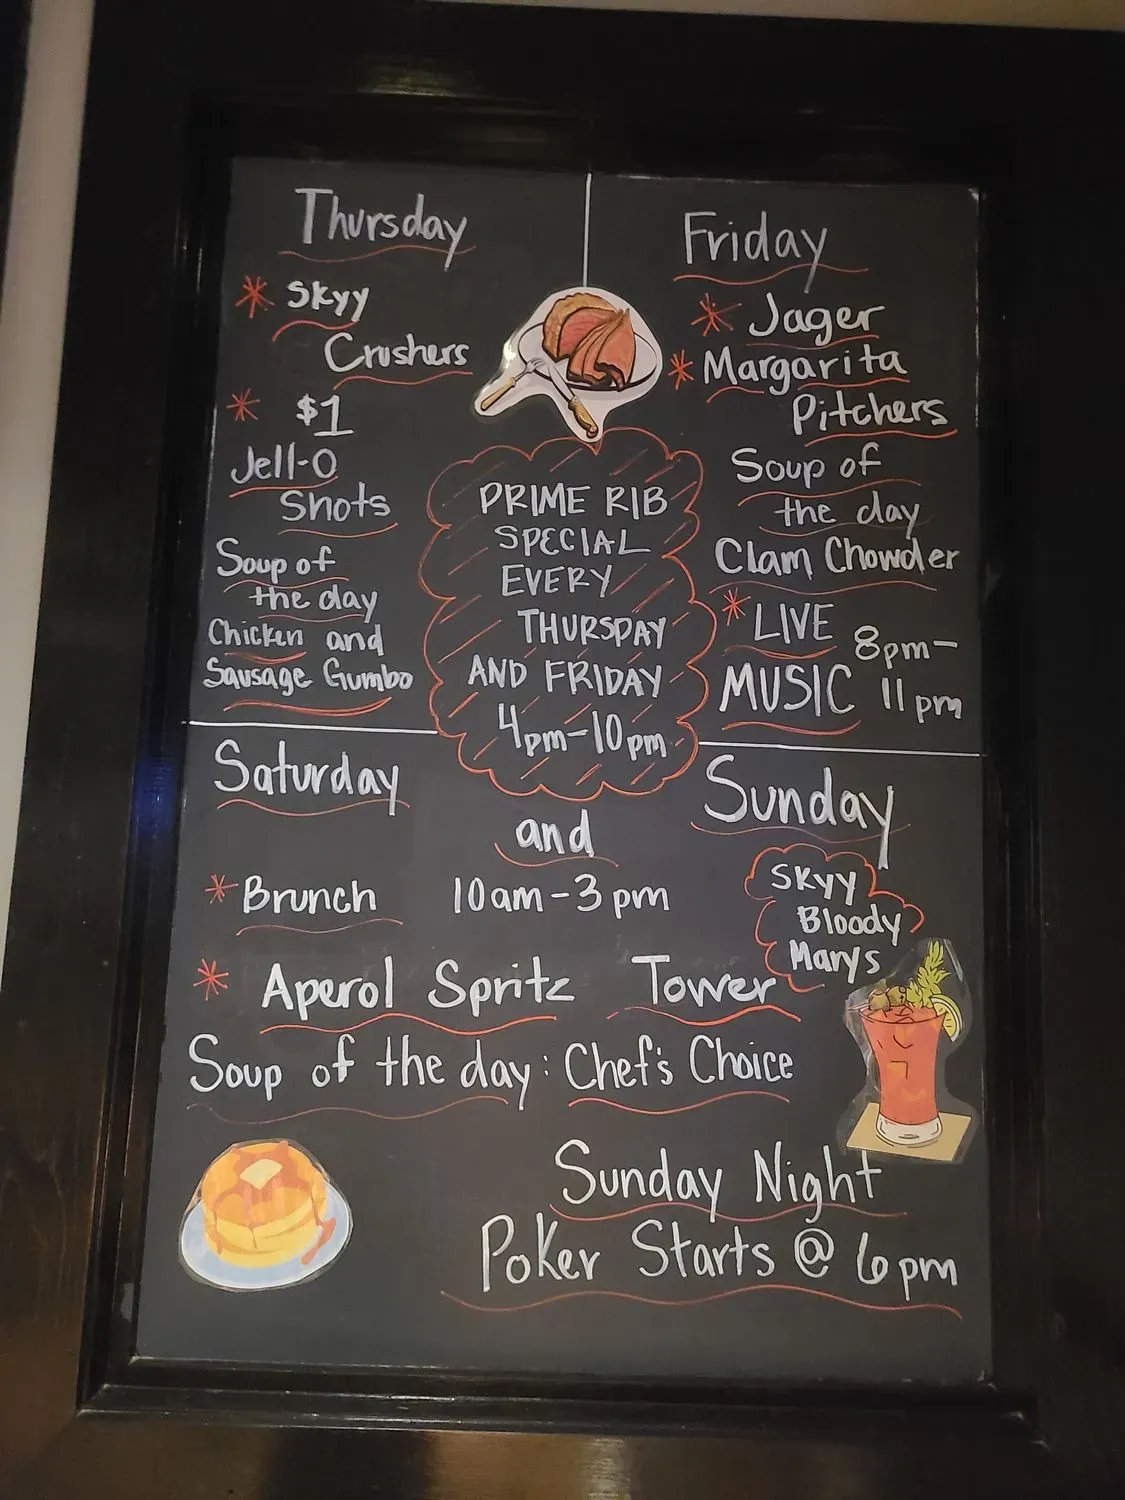 Thursday
* Skyy
Crushers
* $1
Jell-O
Shots
Soup of
the day
Chicken and
Sausage Gumbo
Friday
* Jager
* Margarita
Pitchers
Soup of
the day
Clam Chowder
* LIVE
MUSIC
8pm-
11pm
PRIME RIB
SPECIAL
EVERY
THURSDAY
AND FRIDAY
4pm-10pm
Saturday
and
Sunday
* Brunch 10am-3pm
Skyy
Bloody
Marys
* Aperol Spritz Tower
Soup of the day: Chef's Choice
Sunday Night
Poker Starts @ 6pm